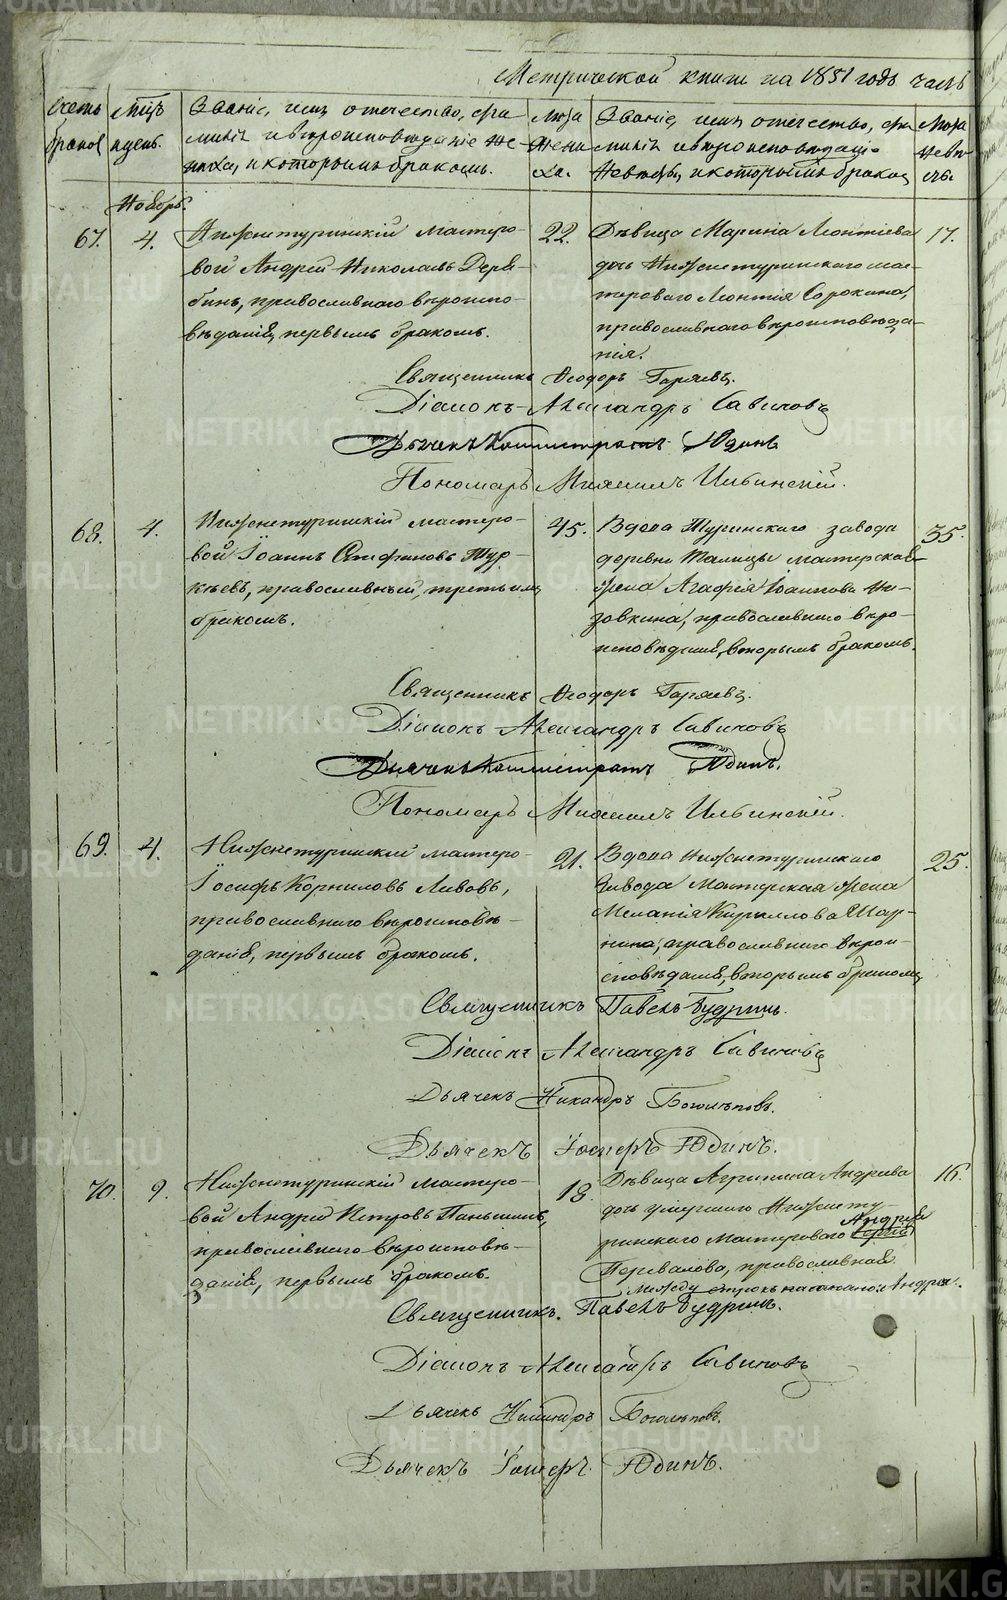 Метрической книги на 1851 годъ часть
Счетъ браков
Мѣц. и день.
Званіе, имя отечество, фамилія и вѣроисповѣданіе жениха, и которымъ бракомъ.
Лѣта жениха.
Званіе, имя отечество, фамилія и вѣроисповѣданіе невѣсты, и которымъ бракомъ
Лѣта невѣсты.
Ноябрь.
67.
4.
Нижнетуринскій мастеро-
вой Андрей Николаевъ Деря-
бинъ, православнаго вѣроиспо-
вѣданія, первымъ бракомъ.
22.
Дѣвица Марина Леонтіева
дочь Нижнетуринскаго мас-
тероваго Леонтія Сорокина,
православнаго вѣроисповѣда-
нія.
17.
Священникъ Ѳеодоръ Гаряевъ.
Діаконъ Александръ Савичовъ
Дьячекъ Каллистратъ Юдинъ
Пономарь Михаилъ Ильинскій.
68.
4.
Нижнетуринскій мастеро-
вой Іоаннъ Стефановъ
православный, третьимъ
бракомъ.
45.
Вдова Туринскаго завода
деревни Талицы мастерская
жена Агафія Іоаннова Ни-
зовкина, православнаго вѣро-
исповѣданія, вторымъ бракомъ.
35.
Священникъ Ѳеодоръ Гаряевъ.
Діаконъ Александръ Савичовъ
Дьячекъ Каллистратъ Юдинъ.
Пономарь Михаилъ Ильинскій.
69.
4.
Нижнетуринскій мастеро-
Іосифъ Корниловъ Львовъ,
православнаго вѣроисповѣ-
данія, первымъ бракомъ.
21.
Вдова Нижнетуринскаго
завода Мастерская жена
Меланія Кириллова Шар-
нина, православнаго вѣрои-
сповѣданія, вторымъ бракомъ
25.
Священникъ Павелъ Будринъ.
Діаконъ Александръ Савичовъ
Дьячекъ Никандръ Боголѣповъ.
Дьячекъ Іосифъ Юдинъ.
70.
9.
Нижнетуринскій мастеро-
вой Андрей Петровъ Паньшинъ,
православнаго вѣроисповѣ-
данія, первымъ бракомъ.
18.
Дѣвица Агрипина Андреева
дочь умершаго Нижнету-
Андрея
ринскаго Мастероваго
Перевалова, православная.
Между строкъ написано: Андрея.
16.
Священникъ. Павелъ Будринъ.
Діаконъ Александръ Савичовъ
Дьячекъ Никандръ Боголѣповъ.
Дьячекъ Іосифъ Юдинъ.
METRIKI.GASO-URAL.RU